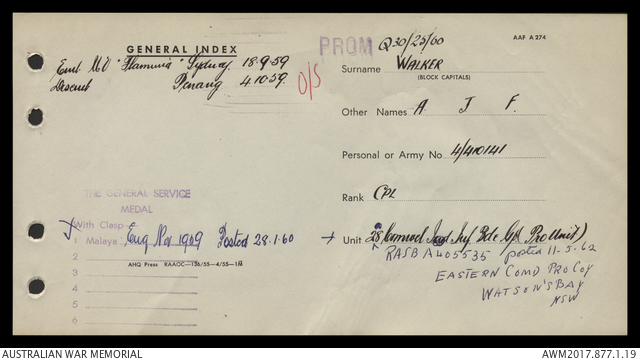 GENERAL INDEX
Emb MV "Flaminia" Sydney 18-9-59
Disemb Penang 4-10-59
O/S
PROM
Q30/25/60
AAF A 274
Surname WALKER
(BLOCK CAPITALS)
Other Names A J F.
Personal or Army No 4/410141
Rank CPL
THE GENERAL SERVICE
MEDAL
With Clasp
1 Malaya Enq No 1909 Posted 28.1.60
2
3
4
5
6
AHQ Press RAAOC—136/55—4/55—1M
Unit 28 Inf Bde Gp Pro Unit)
RASB A405535 posted 11-5-62
EASTERN COMD PRO COY
WATSON'S BAY
NSW
AUSTRALIAN WAR MEMORIAL
AWM2017.877.1.19